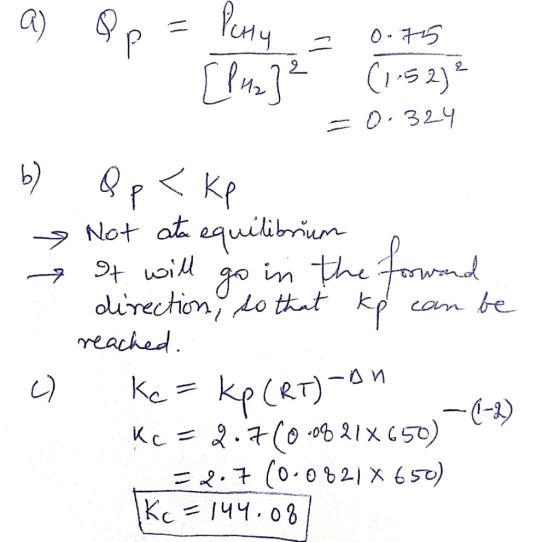 a) Qp = PCH4 / [PH2]² = 0.75 / (1.52)²
= 0.324
b) Qp < Kp
→ Not at equilibrium
→ It will go in the forward
direction, so that Kp can be
reached.
c) Kc = Kp (RT)^-Δn
Kc = 2.7 (0.0821 × 650)^-(1-2)
= 2.7 (0.0821 × 650)
Kc = 144.08